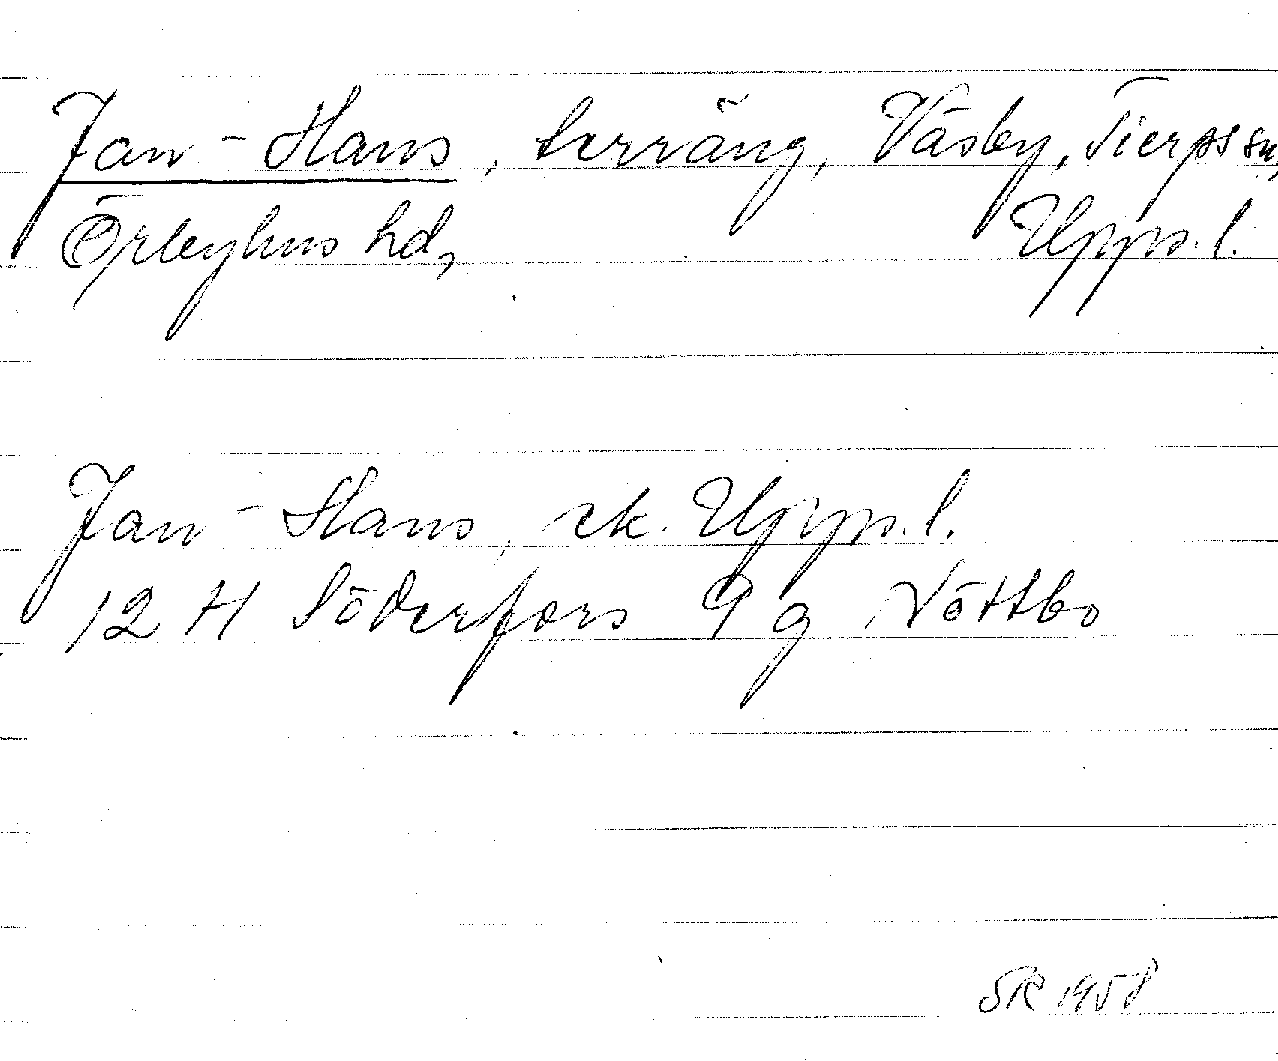 Jan-Hans, terräng, Väsby, Tierps sn,
Örbyhus hd, Upps. l.
Jan-Hans, ek. Upps. l.
12 H Söderfors 9 g Nöttbo
SR 1958